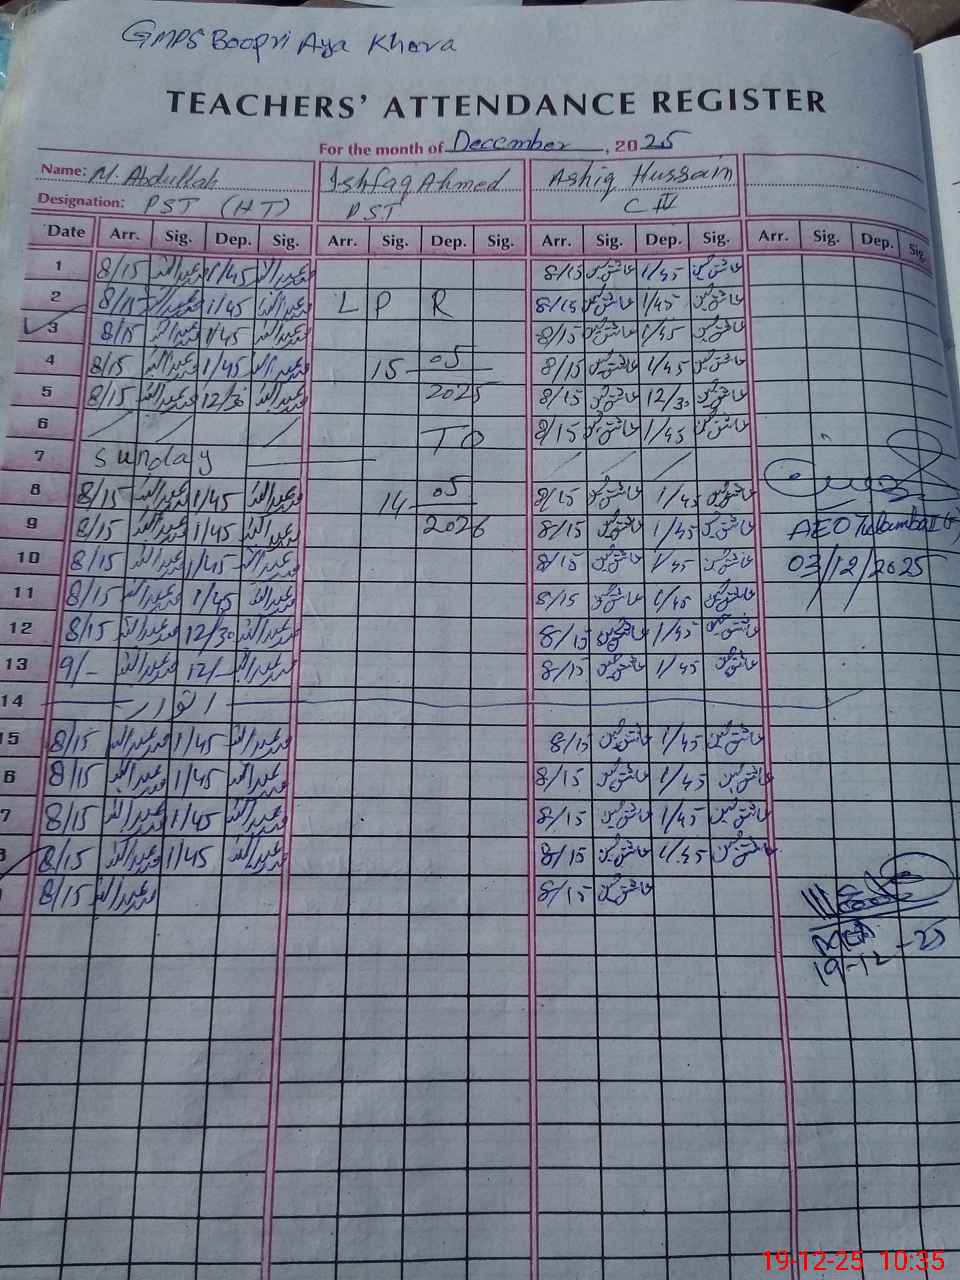 GMPS Boopri Aya Khera
TEACHERS' ATTENDANCE REGISTER
For the month of December, 2025
Name: M. Abdullah Ishfaq Ahmed Ashiq Hussain
Designation: PST (HT) PST C IV
Date Arr. Sig. Dep. Sig. Arr. Sig. Dep. Sig. Arr. Sig. Dep. Sig. Arr. Sig. Dep. Sig.
1 8/15 محمد عبداللہ 1/45 محمد عبداللہ 8/15 عاشق حسین 1/45 عاشق حسین
2 8/15 محمد عبداللہ 1/45 محمد عبداللہ L P R 8/15 عاشق حسین 1/45 عاشق حسین
3 8/15 محمد عبداللہ 1/45 محمد عبداللہ 8/15 عاشق حسین 1/45 عاشق حسین
4 8/15 محمد عبداللہ 1/45 محمد عبداللہ 15-05 8/15 عاشق حسین 1/45 عاشق حسین
5 8/15 محمد عبداللہ 12/30 محمد عبداللہ 2025 8/15 عاشق حسین 12/30 عاشق حسین
6 TO 8/15 عاشق حسین 1/45 عاشق حسین
7 Sunday
8 8/15 محمد عبداللہ 1/45 محمد عبداللہ 14-05 8/15 عاشق حسین 1/45 عاشق حسین
9 8/15 محمد عبداللہ 1/45 محمد عبداللہ 2026 8/15 عاشق حسین 1/45 عاشق حسین AEO Tulamba
10 8/15 محمد عبداللہ 1/45 محمد عبداللہ 8/15 عاشق حسین 1/45 عاشق حسین 03/12/2025
11 8/15 محمد عبداللہ 1/45 محمد عبداللہ 8/15 عاشق حسین 1/45 عاشق حسین
12 8/15 محمد عبداللہ 12/30 محمد عبداللہ 8/15 عاشق حسین 1/45 عاشق حسین
13 9/- محمد عبداللہ 12/- محمد عبداللہ 8/15 عاشق حسین 1/45 عاشق حسین
14 اتوار
15 8/15 محمد عبداللہ 1/45 محمد عبداللہ 8/15 عاشق حسین 1/45 عاشق حسین
6 8/15 محمد عبداللہ 1/45 محمد عبداللہ 8/15 عاشق حسین 1/45 عاشق حسین
7 8/15 محمد عبداللہ 1/45 محمد عبداللہ 8/15 عاشق حسین 1/45 عاشق حسین
8/15 محمد عبداللہ 1/45 محمد عبداللہ 8/15 عاشق حسین 1/45 عاشق حسین
8/15 محمد عبداللہ 8/15 عاشق حسین
19-12-25
19-12-25 10:35